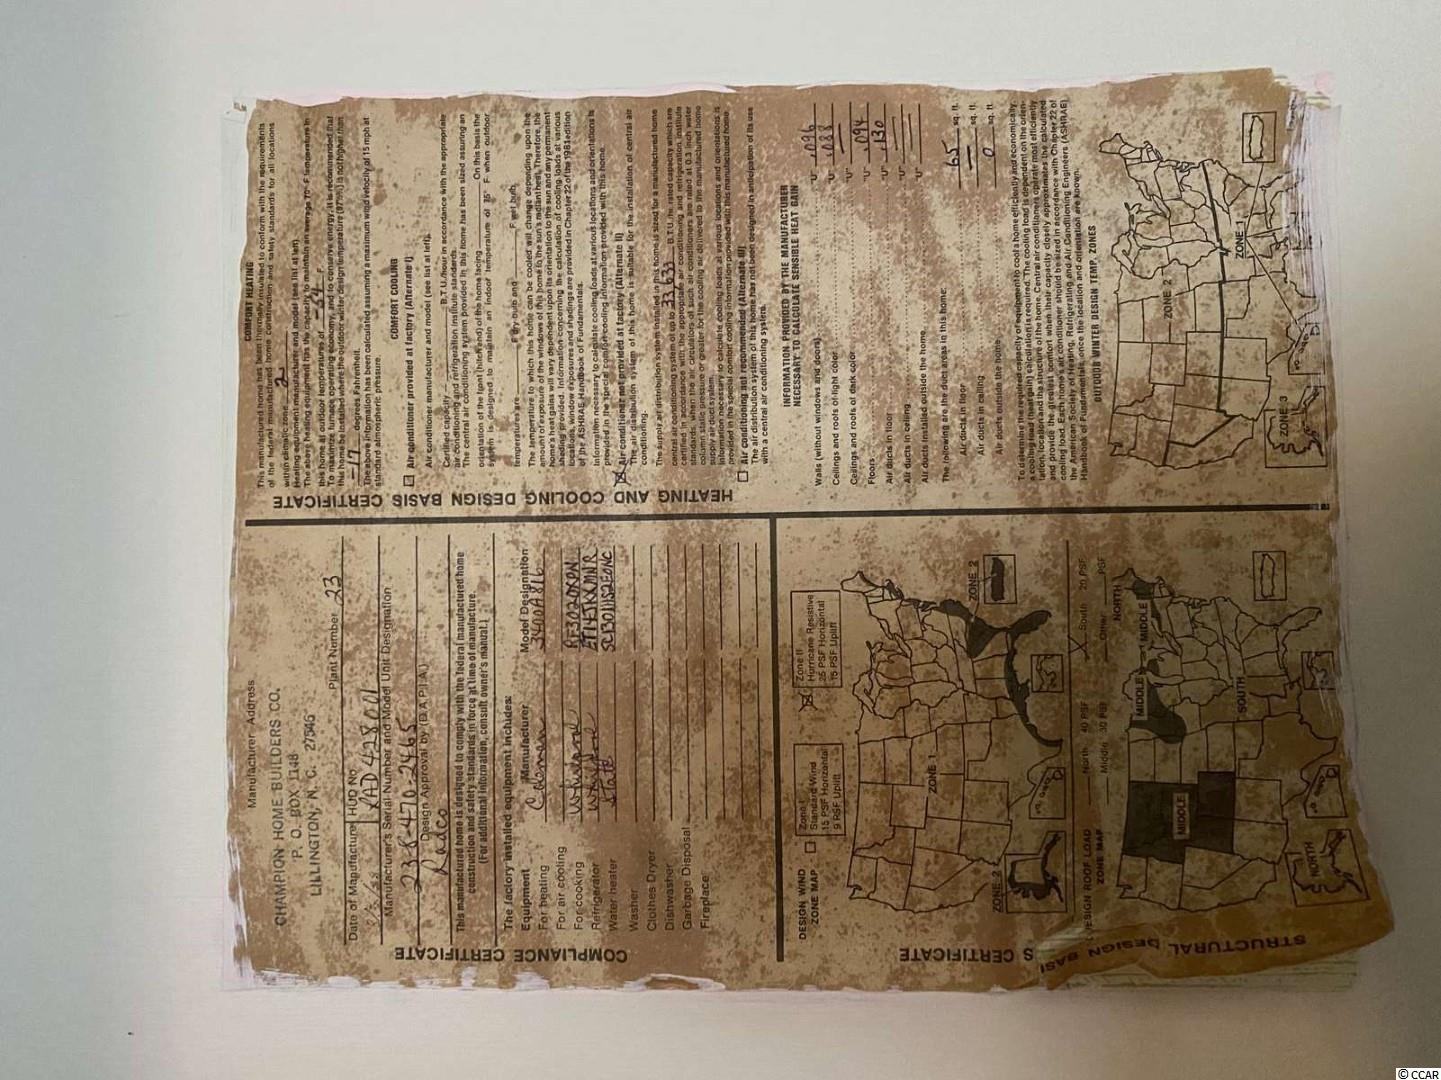 Manufacturer Address
CHAMPION HOME BUILDERS CO.
P. O. BOX 1148
LILLINGTON, N. C. 27546
Plant Number 23
Date of Manufacture HUD No.
RAD 428001
Manufacturer's Serial Number and Model Unit Designation
238-470-2465
Design Approval by (D.A.P.I.A.)
Radco
This manufactured home is designed to comply with the federal manufactured home
construction and safety standards in force at time of manufacture.
(For additional information, consult owner's manual.)
The factory installed equipment includes:
Equipment Manufacturer Model Designation
For heating Coleman 3400A816
For air cooling
For cooking Whirlpool
Refrigerator Whirlpool
Water heater State
Washer
Clothes Dryer
Dishwasher
Garbage Disposal
Fireplace
COMPLIANCE CERTIFICATE
DESIGN WIND
ZONE MAP
Zone I
Standard Wind
15 PSF Horizontal
9 PSF Uplift
Zone II
Hurricane Resistive
25 PSF Horizontal
15 PSF Uplift
ZONE 1
ZONE 2
ZONE 2
DESIGN ROOF LOAD
ZONE MAP
North 40 PSF
South 20 PSF
Middle 30 PSF
Other PSF
NORTH
MIDDLE
MIDDLE
MIDDLE
SOUTH
NORTH
STRUCTURAL DESIGN BASIS CERTIFICATE
COMFORT HEATING
This manufactured home has been thermally insulated to conform with the requirements
of the federal manufactured home construction and safety standards for all locations
within climatic zone 2
Heating equipment manufacturer and model (see list at left).
The above heating equipment has the capacity to maintain an average 70° F temperature in
this home at outdoor temperatures of F.
To maximize furnace operating economy, and to conserve energy, it is recommended that
this home be installed where the outdoor winter design temperature (97½%) is not higher than
degrees Fahrenheit.
The above information has been calculated assuming a maximum wind velocity of 15 mph at
standard atmospheric pressure.
COMFORT COOLING
Air conditioner provided at factory (Alternate I)
Air conditioner manufacturer and model (see list at left).
Certified capacity B.T.U./hour in accordance with the appropriate
air conditioning and refrigeration institute standards.
The central air conditioning system provided in this home has been sized assuming an
orientation of the front (hitch end) of the home facing On this basis the
system is designed to maintain an indoor temperature of 75° F when outdoor
temperatures are F dry bulb and F wet bulb.
The temperature to which this home can be cooled will change depending upon the
amount of exposure of the windows of this home to the sun's radiant heat. Therefore, the
home's heat gains will vary dependent upon its orientation to the sun and any permanent
shading provided. Information concerning the calculation of cooling loads at various
locations, window exposures and shadings are provided in Chapter 22 of the 1981 edition
of the ASHRAE Handbook of Fundamentals.
Information necessary to calculate cooling loads at various locations and orientations is
provided in the special comfort cooling information provided with this home.
Air conditioner not provided at factory (Alternate II)
The air distribution system of this home is suitable for the installation of central air
conditioning.
The supply air distribution system installed in this home is sized for a manufactured home
central air conditioning system of up to 33,633 B.T.U./hr. rated capacity which are
certified in accordance with the appropriate air conditioning and refrigeration institute
standards, when the air circulators of such air conditioners are rated at 0.3 inch water
column static pressure or greater for the cooling air delivered to the manufactured home
supply air duct system.
Information necessary to calculate cooling loads at various locations and orientations is
provided in the special comfort cooling information provided with this manufactured home.
Air conditioning not recommended (Alternate III)
The air distribution system of this home has not been designed in anticipation of its use
with a central air conditioning system.
INFORMATION PROVIDED BY THE MANUFACTURER
NECESSARY TO CALCULATE SENSIBLE HEAT GAIN
Walls (without windows and doors) "U" .096
Ceilings and roofs of light color "U" .088
Ceilings and roofs of dark color "U"
Floors "U" .094
Air ducts in floor "U" .130
Air ducts in ceiling "U"
Air ducts installed outside the home "U"
The following are the duct areas in this home:
Air ducts in floor 65 sq. ft.
Air ducts in ceiling — sq. ft.
Air ducts outside the home 0 sq. ft.
To determine the required capacity of equipment to cool a home efficiently and economically,
a cooling load (heat gain) calculation is required. The cooling load is dependent on the orien-
tation, location and the structure of the home. Central air conditioners operate most efficiently
and provide the greatest comfort when their capacity closely approximates the calculated
cooling load. Each home's air conditioner should be sized in accordance with Chapter 22 of
the American Society of Heating, Refrigerating and Air Conditioning Engineers (ASHRAE)
Handbook of Fundamentals, once the location and orientation are known.
OUTDOOR WINTER DESIGN TEMP. ZONES
ZONE 2
ZONE 1
ZONE 3
HEATING AND COOLING DESIGN BASIS CERTIFICATE
© CCAR